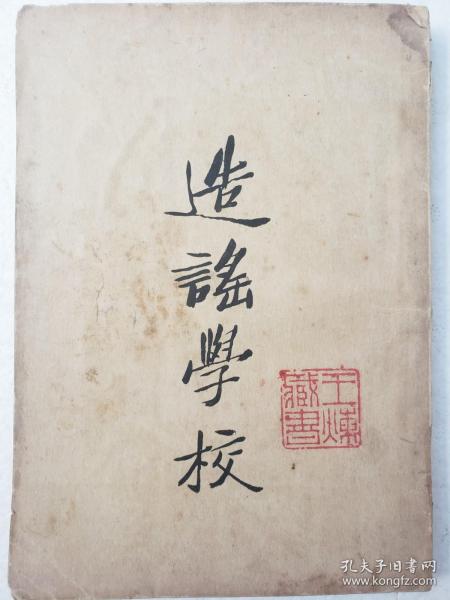 造謠學校
王煉
藏書
孔夫子旧书网
www.kongfz.com